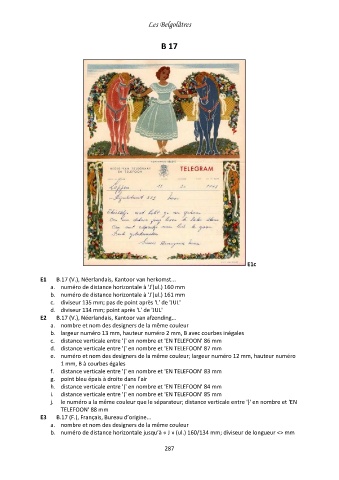 Les Belgolâtres
B 17
TELEGRAM
E1c
E1 B.17 (V.), Néerlandais, Kantoor van herkomst...
a. numéro de distance horizontale à 'J'(ul.) 160 mm
b. numéro de distance horizontale à 'J'(ul.) 161 mm
c. diviseur 135 mm; pas de point après 'L' de 'JUL'
d. diviseur 134 mm; point après 'L' de 'JUL'
E2 B.17 (V.), Néerlandais, Kantoor van afzending...
a. nombre et nom des designers de la même couleur
b. largeur numéro 13 mm, hauteur numéro 2 mm, B avec courbes inégales
c. distance verticale entre '(' en nombre et 'EN TELEFOON' 86 mm
d. distance verticale entre '(' en nombre et 'EN TELEFOON' 87 mm
e. numéro et nom des designers de la même couleur; largeur numéro 12 mm, hauteur numéro
1 mm, B à courbes égales
f. distance verticale entre '(' en nombre et 'EN TELEFOON' 83 mm
g. point bleu épais à droite dans l'air
h. distance verticale entre '(' en nombre et 'EN TELEFOON' 84 mm
i. distance verticale entre '(' en nombre et 'EN TELEFOON' 85 mm
j. le numéro a la même couleur que le séparateur; distance verticale entre '(' en nombre et 'EN
TELEFOON' 88 mm
E3 B.17 (F.), Français, Bureau d'origine...
a. nombre et nom des designers de la même couleur
b. numéro de distance horizontale jusqu'à « J » (ul.) 160/134 mm; diviseur de longueur <> mm
287